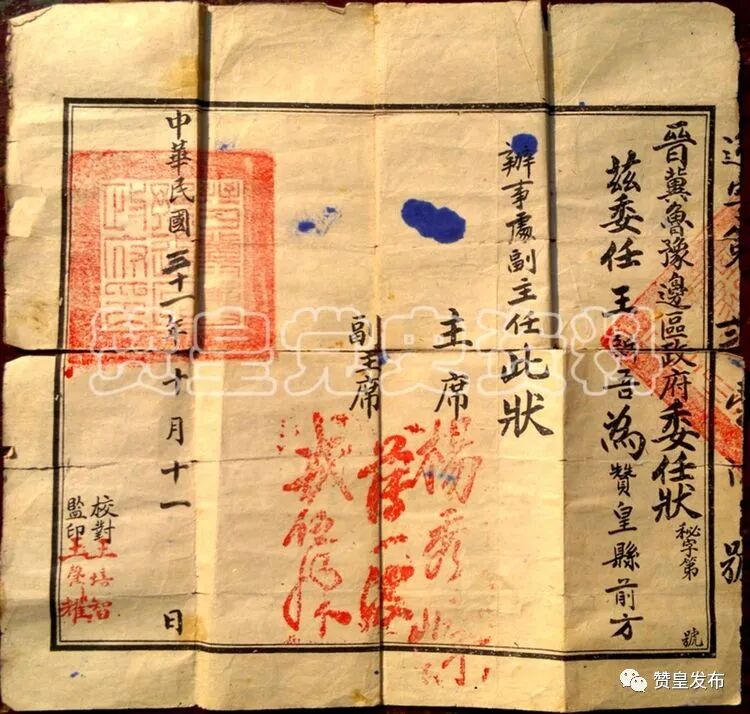 晉冀魯豫邊區政府委任狀 秘字第 號
茲委任王新吾為贊皇縣前方
辦事處副主任此狀
主席 楊秀峰
副主席 薄一波
戎伍勝
中華民國三十一年十月十一日
校對王培智
監印王瑩耀
赞皇党史资料
赞皇发布